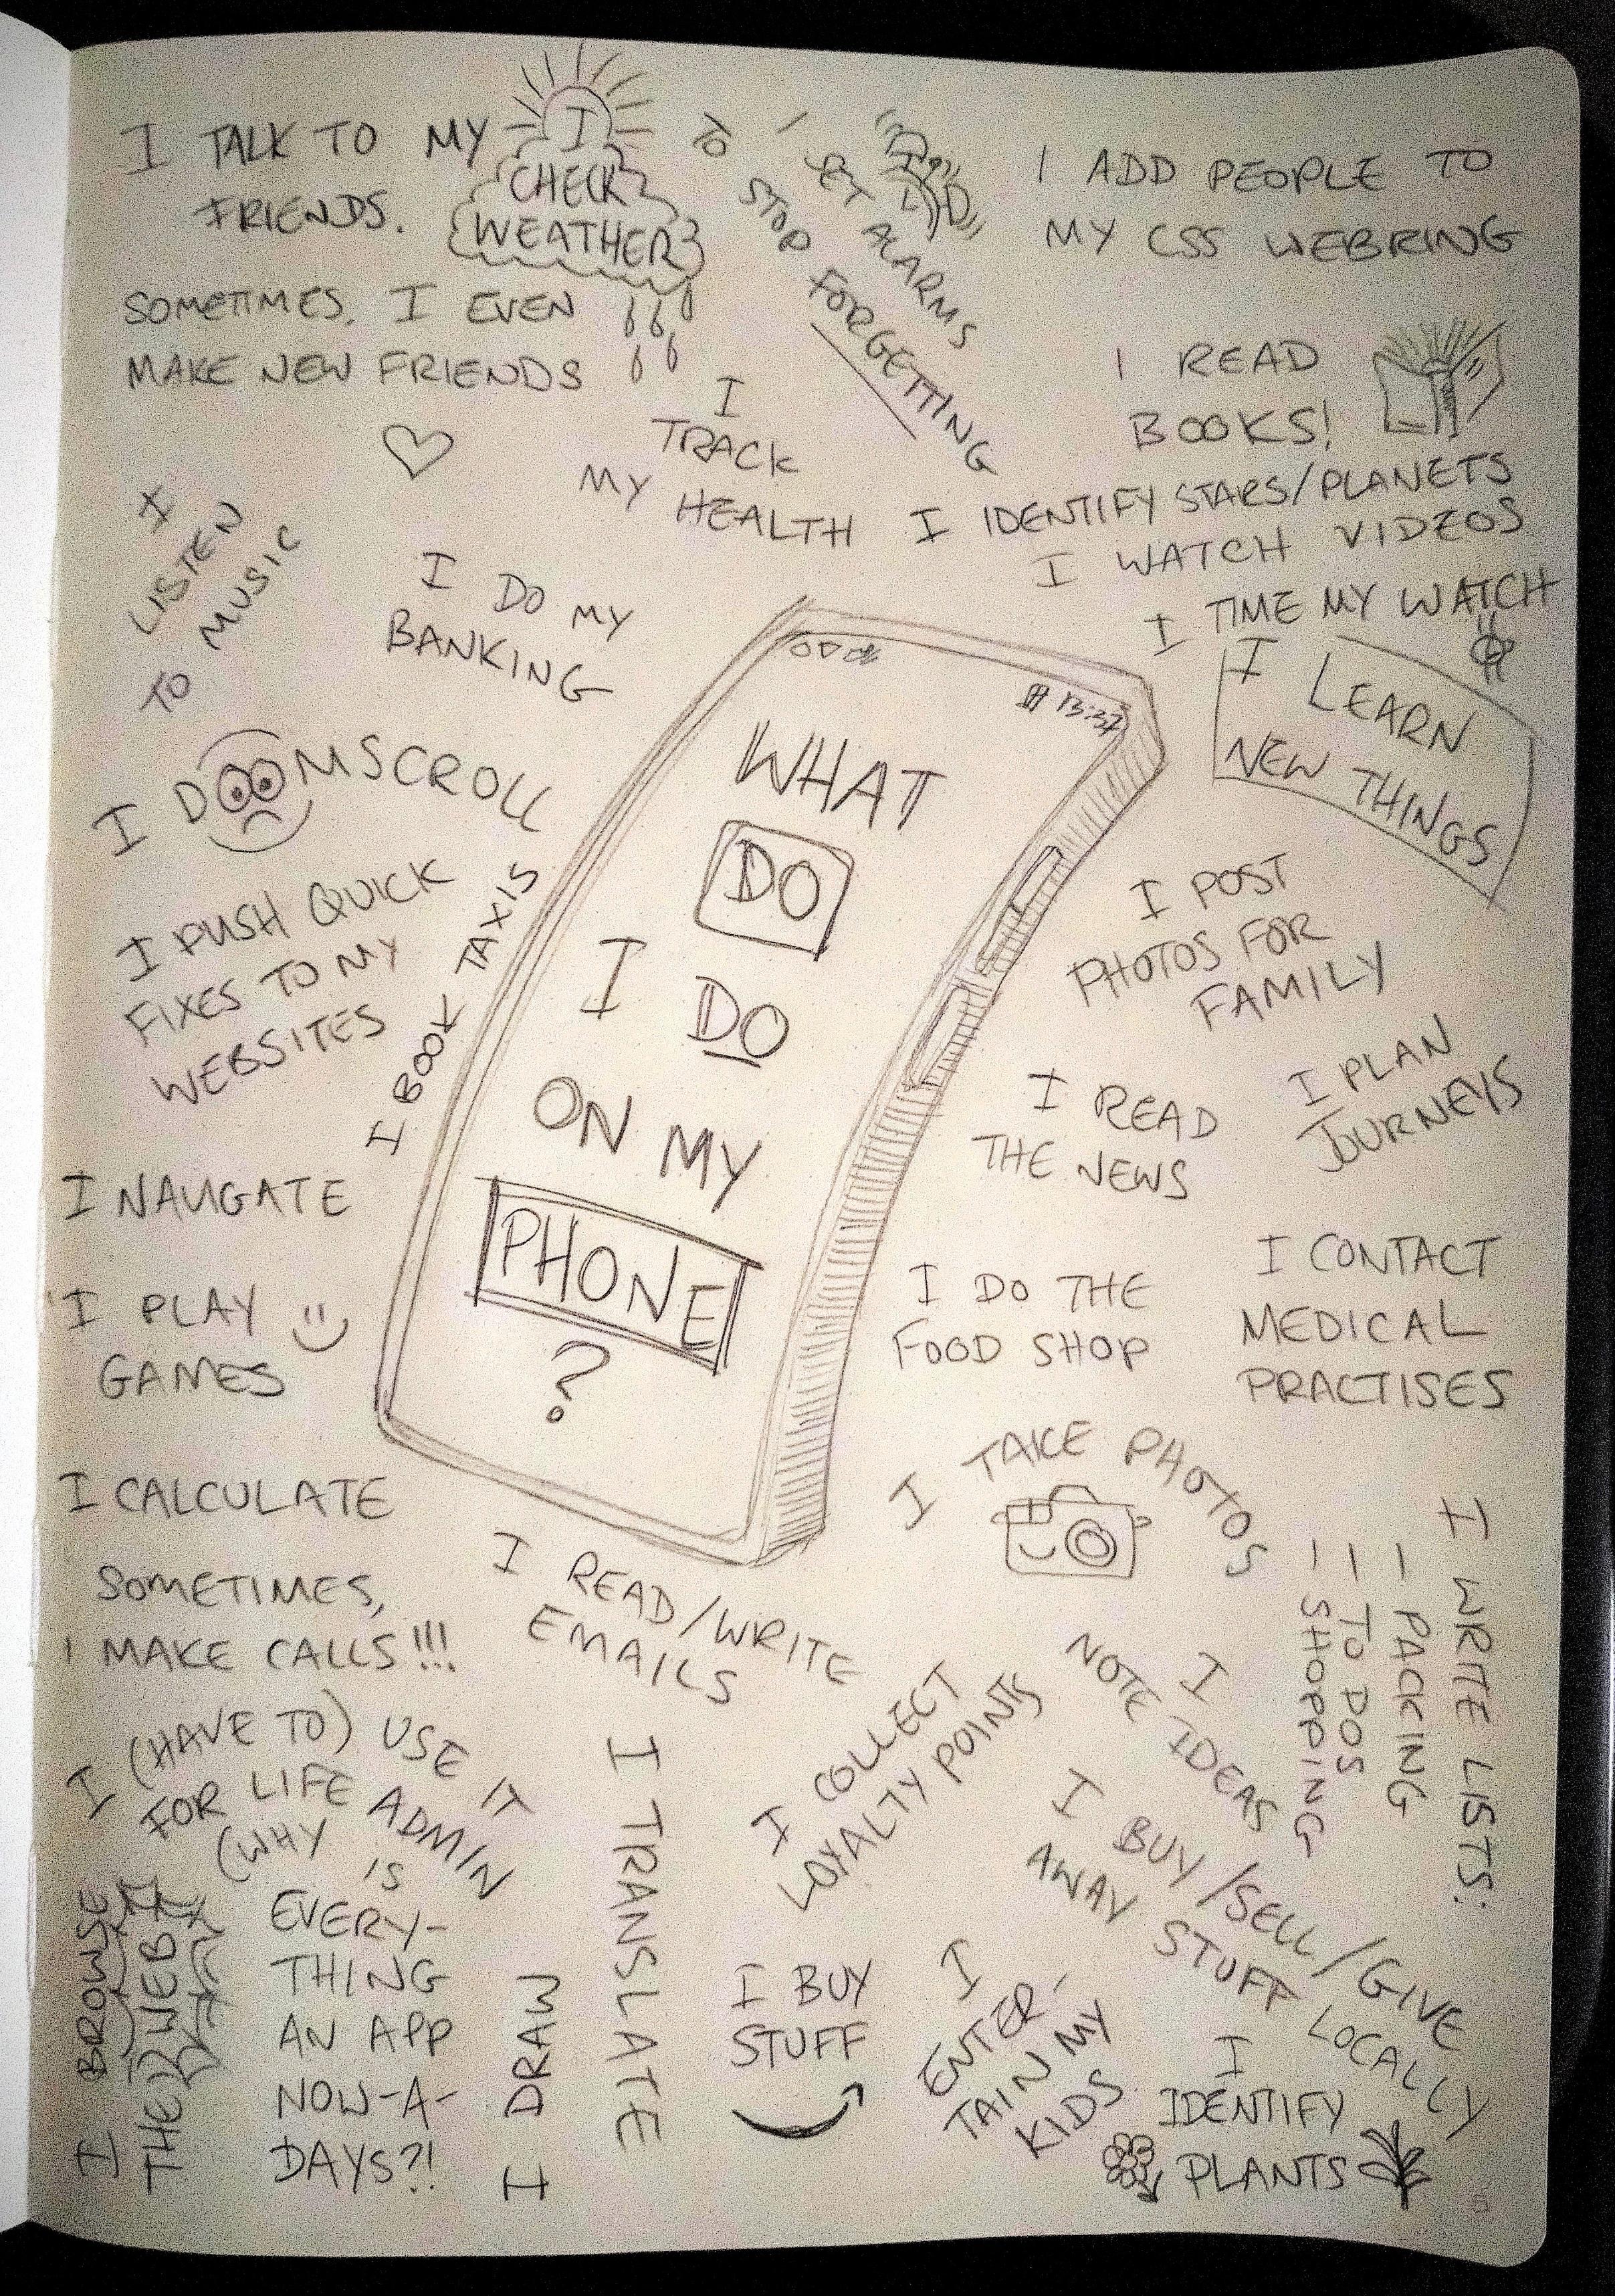 I TALK TO MY
FRIENDS.
SOMETIMES, I EVEN
MAKE NEW FRIENDS
I
CHECK
WEATHER
I SET ALARMS
TO STOP FORGETTING
I ADD PEOPLE TO
MY CSS WEBRING
I READ
BOOKS!
I
TRACK
MY HEALTH
I IDENTIFY STARS/PLANETS
I WATCH VIDEOS
I TIME MY WATCH
I LEARN
NEW THINGS
I
LISTEN
TO MUSIC
I DO MY
BANKING
I DOOMSCROLL
I PUSH QUICK
FIXES TO MY
WEBSITES
I BOOK TAXIS
13:37
WHAT
DO
I DO
ON MY
PHONE
?
I POST
PHOTOS FOR
FAMILY
I READ
THE NEWS
I PLAN
JOURNEYS
I NAVIGATE
I PLAY
GAMES
I DO THE
FOOD SHOP
I CONTACT
MEDICAL
PRACTISES
I CALCULATE
I TAKE PHOTOS
SOMETIMES,
I MAKE CALLS!!!
I READ/WRITE
EMAILS
I WRITE LISTS:
- PACKING
- TO DOS
- SHOPPING
I
NOTE IDEAS
I (HAVE TO) USE IT
FOR LIFE ADMIN
(WHY IS
EVERY-
THING
AN APP
NOW-A-
DAYS?!
I BROWSE
THE WEB
I DRAW
I TRANSLATE
I COLLECT
LOYALTY POINTS
I BUY
STUFF
I
ENTER-
TAIN MY
KIDS
I BUY/SELL/GIVE
AWAY STUFF LOCALLY
I
IDENTIFY
PLANTS